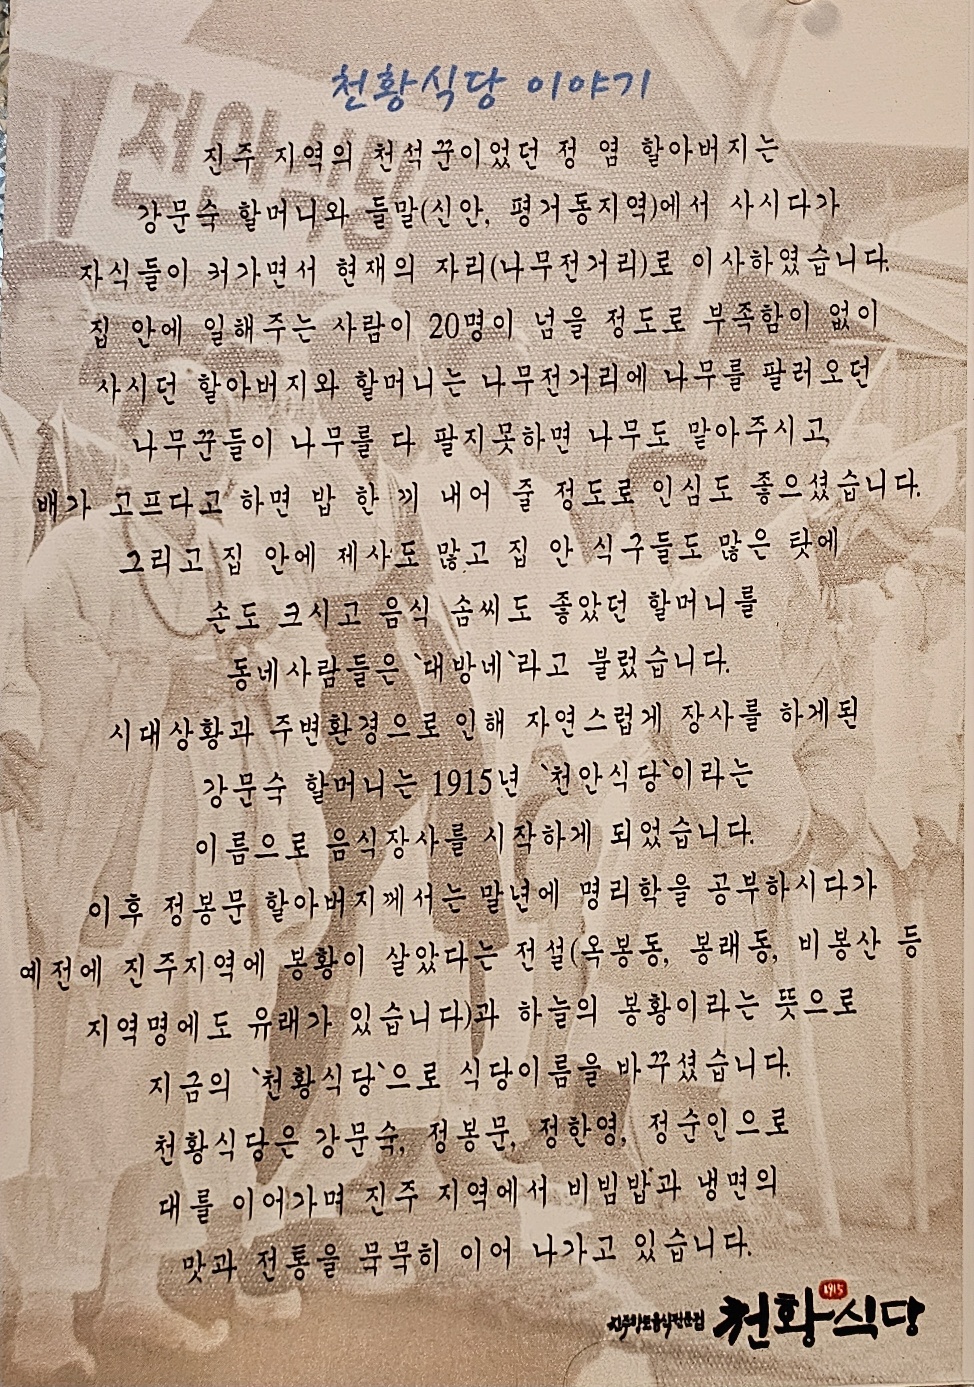 천황식당 이야기
진주 지역의 천석꾼이었던 정 염 할아버지는
강문숙 할머니와 들말(신안, 평거동지역)에서 사시다가
자식들이 커가면서 현재의 자리(나무전거리)로 이사하였습니다.
집 안에 일해주는 사람이 20명이 넘을 정도로 부족함이 없이
사시던 할아버지와 할머니는 나무전거리에 나무를 팔러오던
나무꾼들이 나무를 다 팔지못하면 나무도 맡아주시고,
배가 고프다고 하면 밥 한 끼 내어 줄 정도로 인심도 좋으셨습니다.
그리고 집 안에 제사도 많고 집 안 식구들도 많은 탓에
손도 크시고 음식 솜씨도 좋았던 할머니를
동네사람들은 `대방네`라고 불렀습니다.
시대상황과 주변환경으로 인해 자연스럽게 장사를 하게된
강문숙 할머니는 1915년 `천안식당`이라는
이름으로 음식장사를 시작하게 되었습니다.
이후 정봉문 할아버지께서는 말년에 명리학을 공부하시다가
예전에 진주지역에 봉황이 살았다는 전설(옥봉동, 봉래동, 비봉산 등
지역명에도 유래가 있습니다)과 하늘의 봉황이라는 뜻으로
지금의 `천황식당`으로 식당이름을 바꾸셨습니다.
천황식당은 강문숙, 정봉문, 정한영, 정순인으로
대를 이어가며 진주 지역에서 비빔밥과 냉면의
맛과 전통을 묵묵히 이어 나가고 있습니다.
1915
진주향토음식전문점 천황식당
천안식당